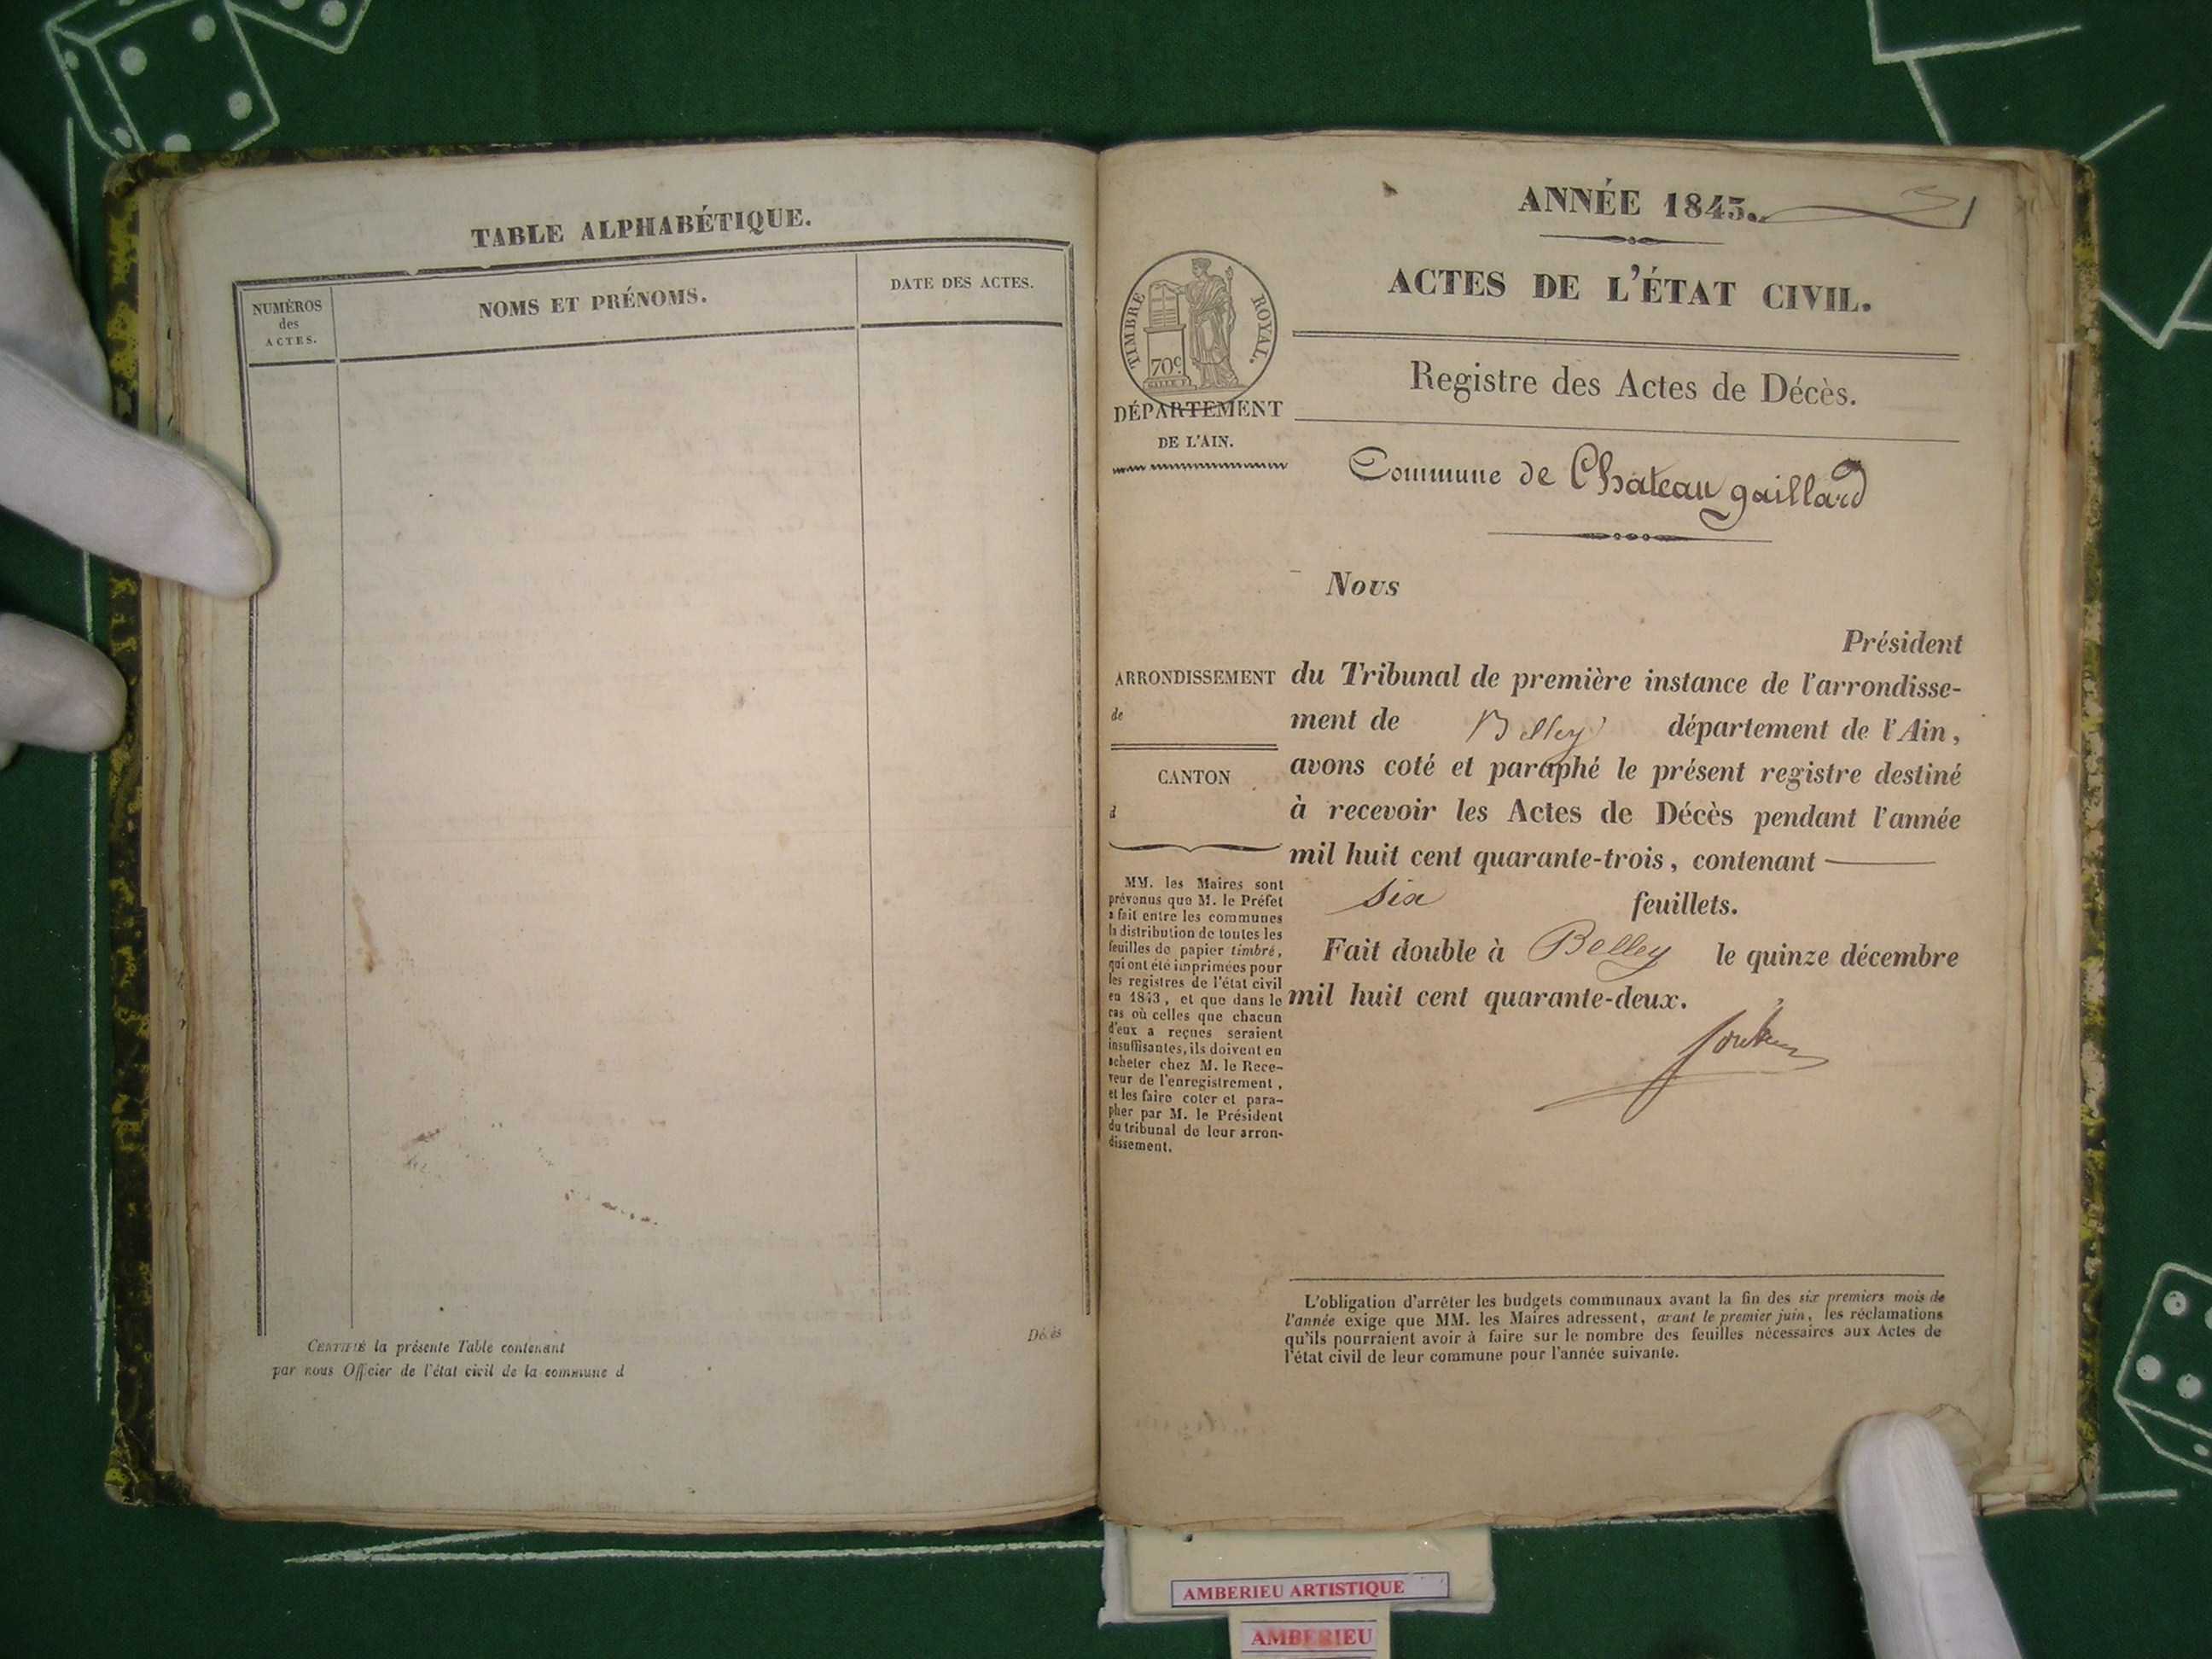 TABLE ALPHABÉTIQUE.
NUMÉROS
des
ACTES.
NOMS ET PRÉNOMS.
DATE DES ACTES.
CERTIFIÉ la présente Table contenant
par nous Officier de l'état civil de la commune d
Décès
ANNÉE 1843.
ACTES DE L'ÉTAT CIVIL.
TIMBRE ROYAL.
70c
DÉPARTEMENT
DE L'AIN.
Registre des Actes de Décès.
Commune de Chateau gaillard
Nous
Président
ARRONDISSEMENT
de
CANTON
d
du Tribunal de première instance de l'arrondisse-
ment de Belley département de l'Ain,
avons coté et paraphé le présent registre destiné
à recevoir les Actes de Décès pendant l'année
mil huit cent quarante-trois, contenant
six feuillets.
Fait double à Belley le quinze décembre
mil huit cent quarante-deux.
MM. les Maires sont
prévenus que M. le Préfet
a fait entre les communes
la distribution de toutes les
feuilles de papier timbré,
qui ont été imprimées pour
les registres de l'état civil
en 1843, et que dans le
cas où celles que chacun
d'eux a reçues seraient
insuffisantes, ils doivent en
acheter chez M. le Rece-
veur de l'enregistrement,
et les faire coter et para-
pher par M. le Président
du tribunal de leur arron-
dissement.
L'obligation d'arrêter les budgets communaux avant la fin des six premiers mois de
l'année exige que MM. les Maires adressent, avant le premier juin, les réclamations
qu'ils pourraient avoir à faire sur le nombre des feuilles nécessaires aux Actes de
l'état civil de leur commune pour l'année suivante.
AMBERIEU ARTISTIQUE
AMBERIEU